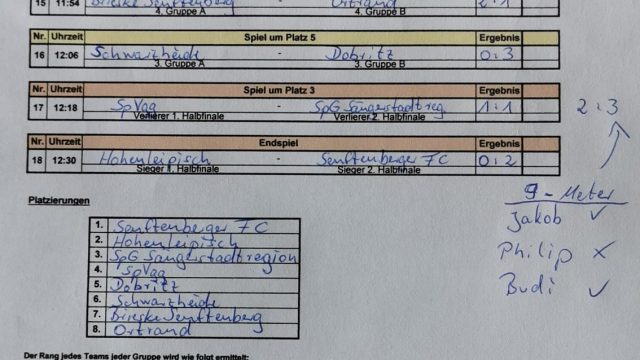 15 11:54 Brieske Senftenberg - Ortrand 2:1
4. Gruppe A 4. Gruppe B
Nr. Uhrzeit Spiel um Platz 5 Ergebnis
16 12:06 Schwarzheide - Dobritz 0:3
3. Gruppe A 3. Gruppe B
Nr. Uhrzeit Spiel um Platz 3 Ergebnis
17 12:18 SpVgg - SpG Sängerstadtreg 1:1 2:3
Verlierer 1. Halbfinale Verlierer 2. Halbfinale
Nr. Uhrzeit Endspiel Ergebnis
18 12:30 Hohenleipisch - Senftenberger FC 0:2
Sieger 1. Halbfinale Sieger 2. Halbfinale
9-Meter
Jakob ✓
Philip ✗
Budi ✓
Platzierungen
1. Senftenberger FC
2. Hohenleipisch
3. SpG Sängerstadtregion
4. SpVgg
5. Dobritz
6. Schwarzheide
7. Brieske Senftenberg
8. Ortrand
Der Rang jedes Teams jeder Gruppe wird wie folgt ermittelt: